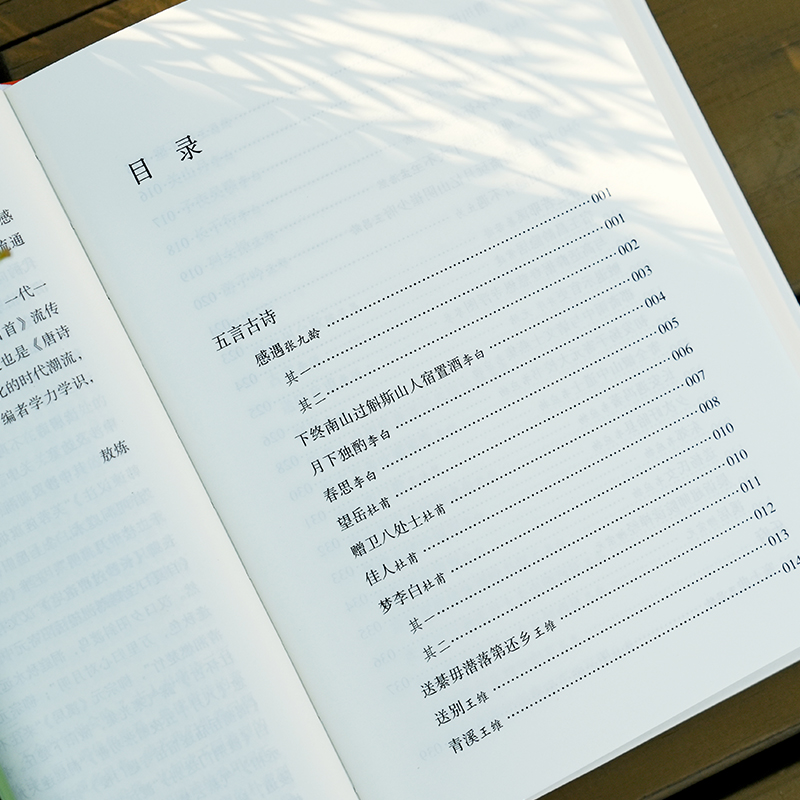 感
流通
一代一
首》流传
也是《唐诗
化的时代潮流，
编者学力学识，
敖炼
目 录
五言古诗
感遇 张九龄 ………… 001
其一 ………… 001
其二 ………… 002
下终南山过斛斯山人宿置酒 李白 ………… 003
月下独酌 李白 ………… 004
春思 李白 ………… 005
望岳 杜甫 ………… 006
赠卫八处士 杜甫 ………… 007
佳人 杜甫 ………… 008
梦李白 杜甫 ………… 010
其一 ………… 010
其二 ………… 011
送綦毋潜落第还乡 王维 ………… 012
送别 王维 ………… 013
青溪 王维 ………… 014